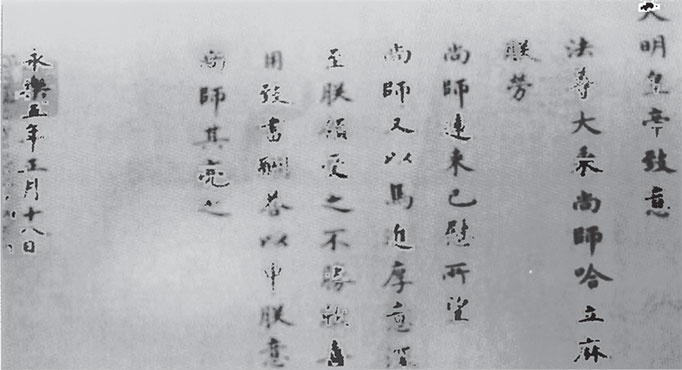 大明皇帝致意
法尊大乘尚師哈立麻
朕勞
尚師遠來已慰所望
尚師又以馬進厚意深
至朕領受之不勝欣喜
用致書酬答以申朕意
尚師其亮之
永樂五年正月十八日